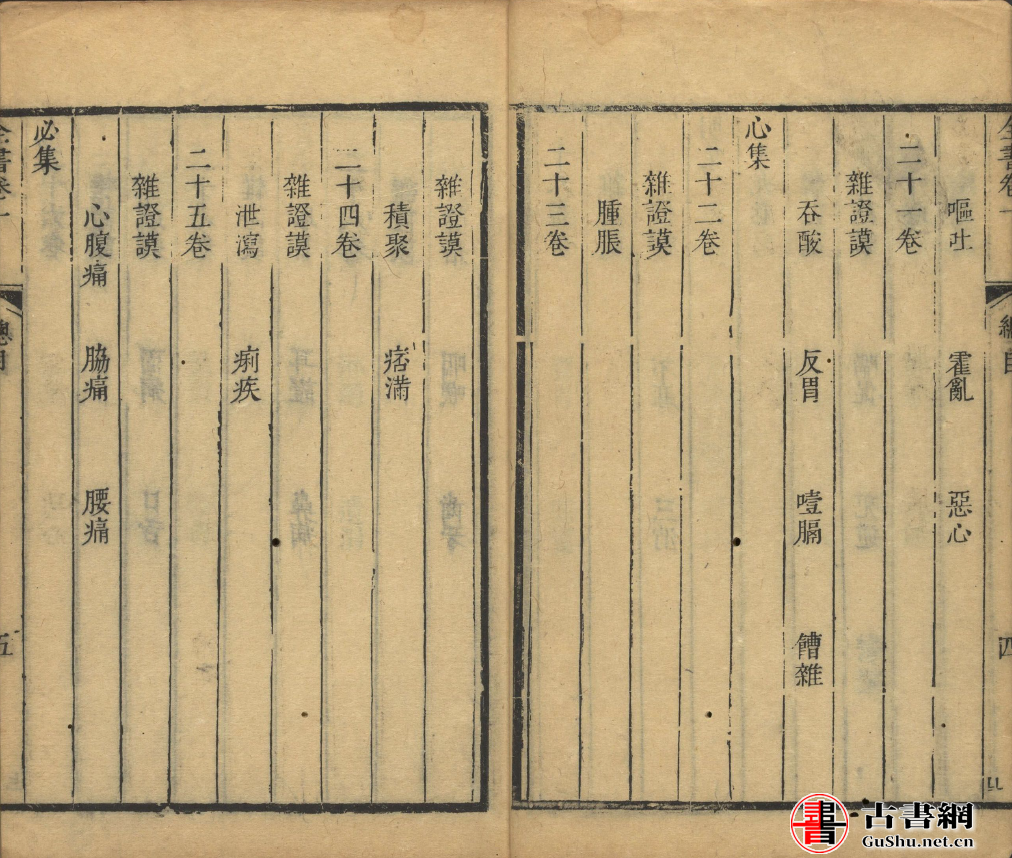 全書卷一
四
嘔吐 霍亂 惡心
二十一卷
雜證謨
吞酸 反胃 噎膈 饐雜
心集
二十二卷
雜證謨
腫脹
二十三卷
雜證謨
積聚 痞滿
二十四卷
雜證謨
泄瀉 痢疾
二十五卷
雜證謨
心腹痛 脇痛 腰痛
必集
總目
五
古書網
GuShu.net.cn